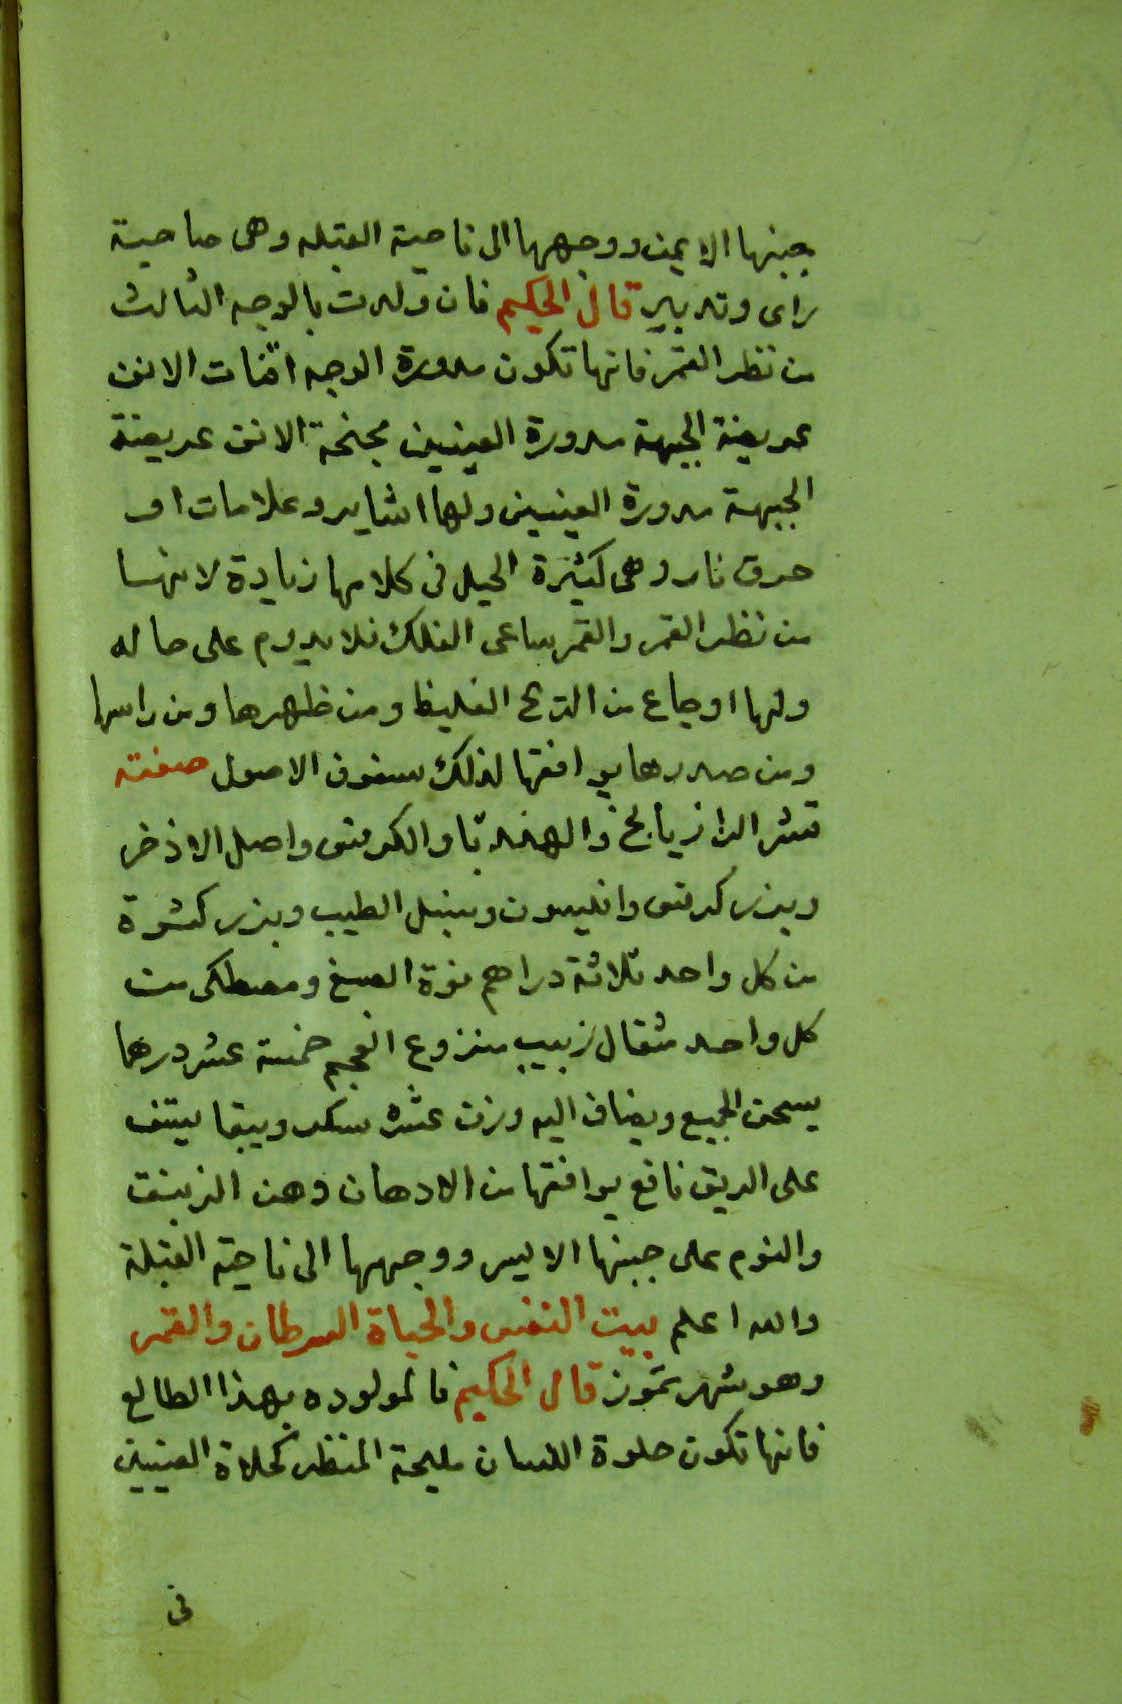 جبنها الايمن ووجهها الى ناحية القبله وهى صاحبة
راى وتدبير قال الحكيم فان ولدت بالوجه الثالث
من نظر القمر فانها تكون مدورة الوجه اقنات الانف
عريضة الجبهة مدورة العينين مجنحة الانف عريضة
الجبهة مدورة العينين ولها اشاير وعلامات او
حرق نار وهى كثيرة الحيل فى كلامها زيادة لانها
من نظر القمر والقمر ساعى الفلك فلا يدوم على حاله
ولها اوجاع من الريح الغليظ ومن ظهرها ومن راسها
ومن صدرها يوافقها لذلك سفوف الاصول صفته
قشر الرازيانج والهندبا والكرفس واصل الاذخر
وبزر كرفس وانيسون وسنبل الطيب وبزر كشوة
من كل واحد ثلاثة دراهم فوة الصبغ ومصطكى من
كل واحد مثقال زبيب منزوع العجم خمسة عشر درهما
يسحق الجميع ويضاف اليه وزن عشره سكر ويبقا يستف
على الريق نافع يوافقها من الادهان دهن الزنبق
والنوم على جبنها الايسر ووجهها الى ناحية القبلة
والله اعلم بيت النفس والحياة السرطان والقمر
وهو شهر تموز قال الحكيم فالمولوده بهذا الطالع
فانها تكون حلوة اللسان مليحة المنظر كحلاة العينين
فى